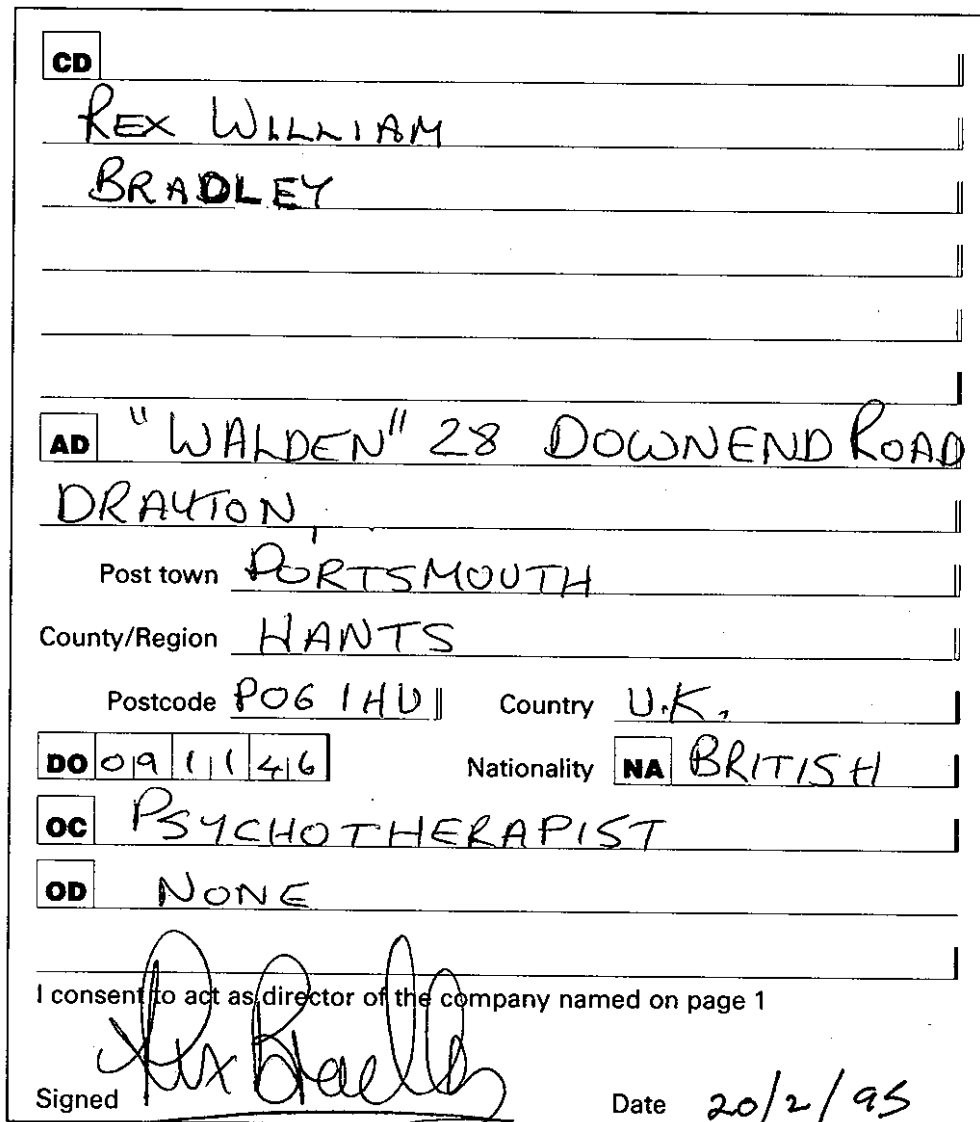 CD
REX WILLIAM
BRADLEY
AD "WALDEN" 28 DOWNEND ROAD
DRAYTON,
Post town PORTSMOUTH
County/Region HANTS
Postcode PO6 1HU Country U.K.
DO 09 11 46 Nationality NA BRITISH
OC PSYCHOTHERAPIST
OD NONE
I consent to act as director of the company named on page 1
Signed Rex Bradley Date 20/2/95